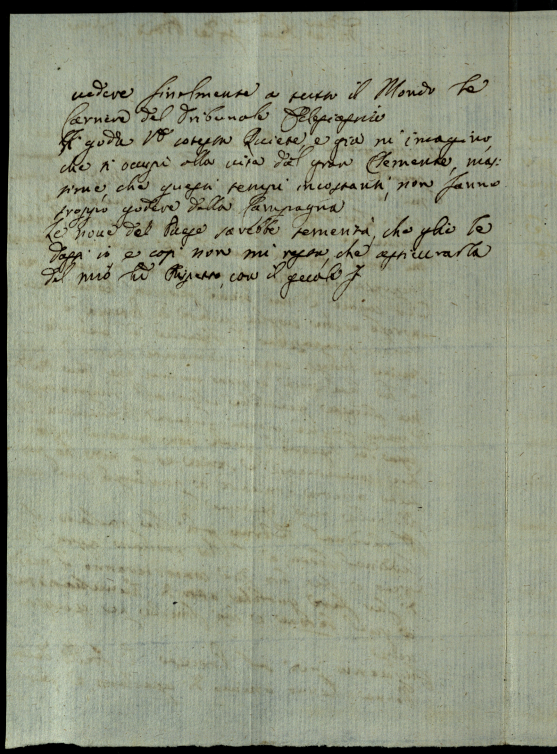 vedere finalmente a tutto il Mondo le
Carnere del Tribunale
Si goda V.S. cotesta Quiete, e già mi imagino
che si occupi alla vita del gran Clemente, mas:
sime che questi tempi incostanti, non fanno
troppo godere della Campagna
Le nove del Paese sarebbe temerità, che glie le
dassi io e così non mi resta, che assicurarla
del mio Rispetto, con il